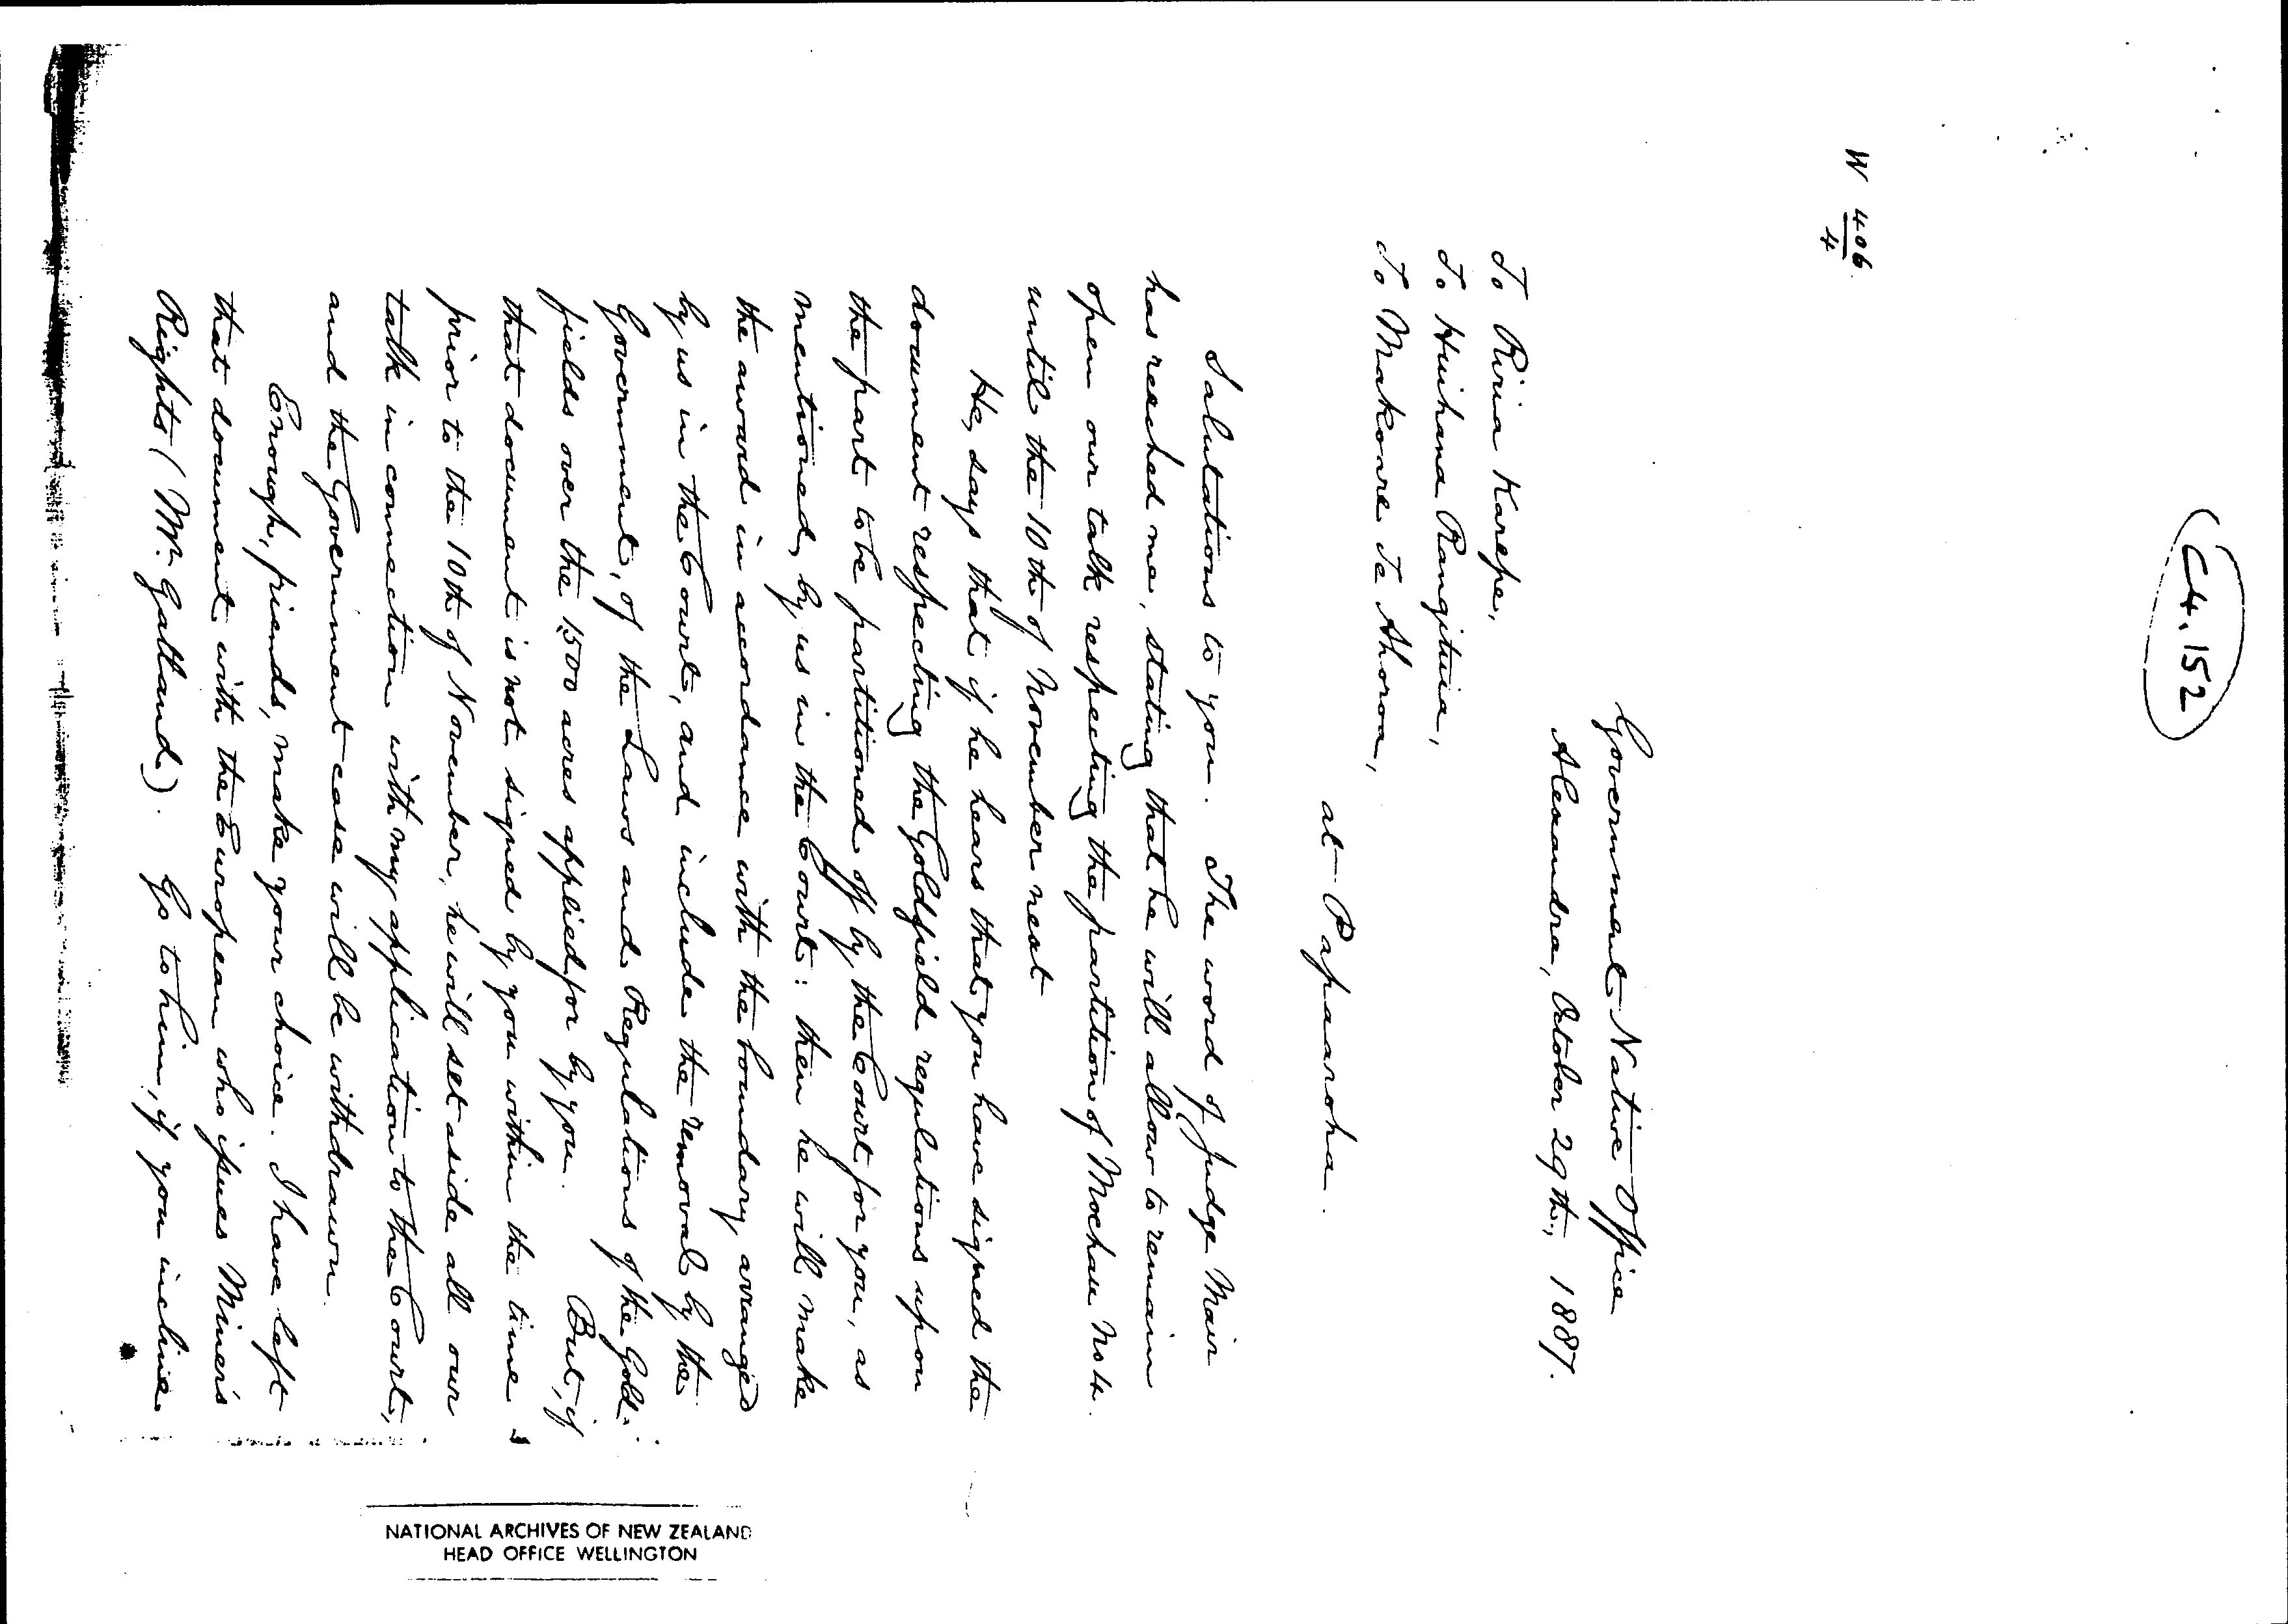 C4.152
W 406
4
Government Native Office
Alexandra, October 29th, 1887.
To Riria Karepe,
To Huihana Rangituia,
To Makoare Te Ahoroa,
at Paparoha.
Salutations to you. The word of Judge Mair
has reached me, stating that he will allow to remain
open our talk respecting the partition of Moehau No 4.
until the 10th of November next
He, says that if he hears that you have signed the
document respecting the Goldfield regulations upon
the part to be partitioned off by the Court for you, as
mentioned, by us in the Court: then he will make
the award in accordance with the boundary, arranged
by us in the Court, and include the removal by the
Government, of the Laws and Regulations of the Gold-
fields over the 1500 acres applied for by you. But, if
that document is not signed by you within the time
prior to the 10th of November, he will set aside all our
talk in connection with my application to the Court,
and the Government case will be withdrawn.
Enough, friends, make your choice. I have left
that document with the European who issues Miner's
Rights (Mr. Galland). Go to him, if you incline
NATIONAL ARCHIVES OF NEW ZEALAND
HEAD OFFICE WELLINGTON